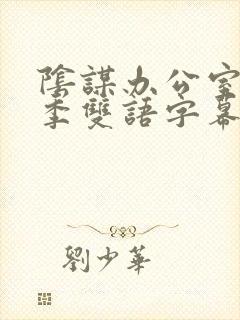 陰謀办公室
季雙語字幕
劉少華